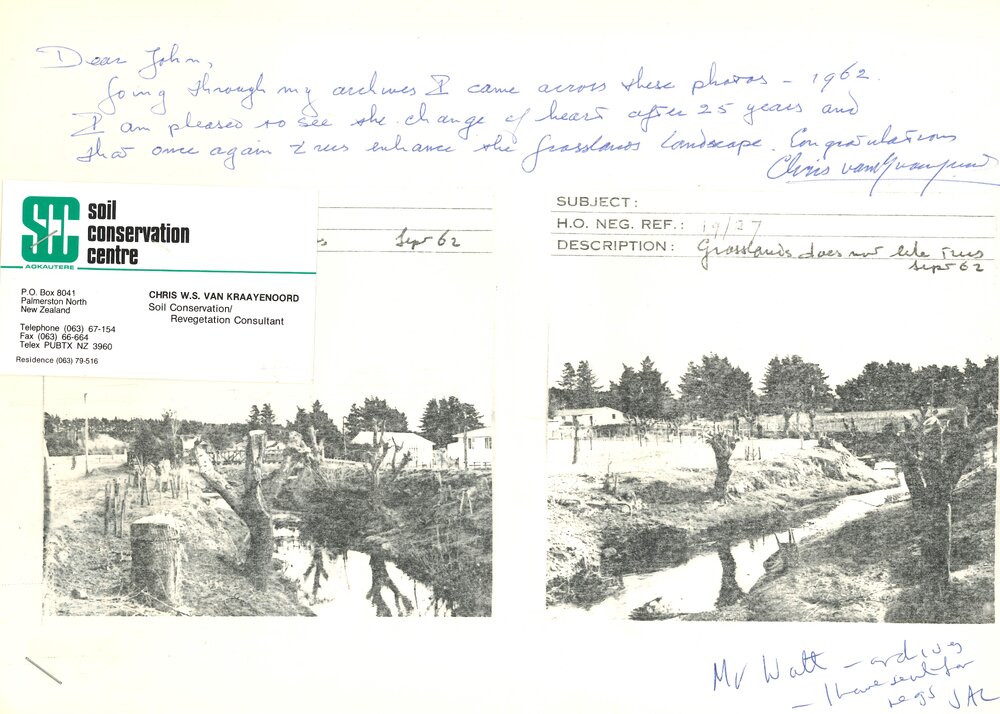 Dear John,
Going through my archives I came across these photos - 1962.
I am pleased to see the change of heart after 25 years and
that once again trees enhance the Grasslands Landscape. Congratulations
Chris van Kraayenoord
SHC
AOKAUTERE
soil
conservation
centre
P.O. Box 8041
Palmerston North
New Zealand
Telephone (063) 67-154
Fax (063) 66-664
Telex PUBTX NZ 3960
Residence (063) 79-516
CHRIS W.S. VAN KRAAYENOORD
Soil Conservation/
Revegetation Consultant
s Sept 62
SUBJECT:
H.O. NEG. REF.: 19/27
DESCRIPTION: Grasslands does not like trees
Sept 62
Mr Watt - archives
- I have sent for
negs JAL